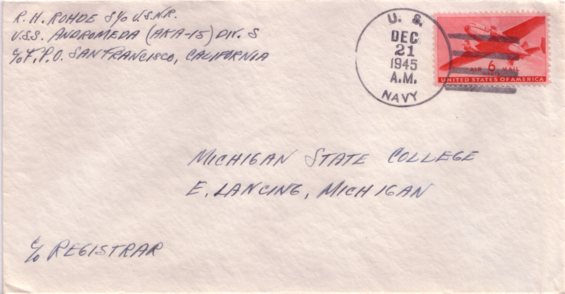 R.H. ROHDE S1/c U.S.N.R.
U.S.S. ANDROMEDA (AKA-15) DIV. S
c/o F.P.O. SAN FRANCISCO, CALIFORNIA
U. S.
DEC
21
1945
A.M.
NAVY
AIR 6¢ MAIL
UNITED STATES OF AMERICA
MICHIGAN STATE COLLEGE
E. LANCING, MICHIGAN
c/o REGISTRAR